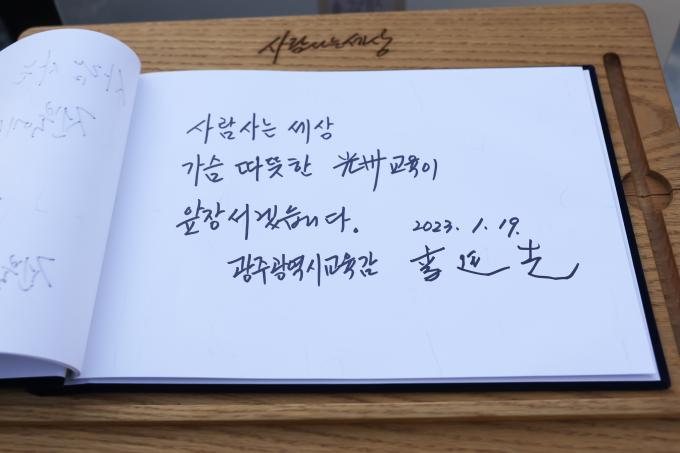 사람사는세상
사람사는 세상
가슴 따뜻한 光州교육이
앞장서겠습니다. 2023. 1. 19.
광주광역시교육감 李廷先